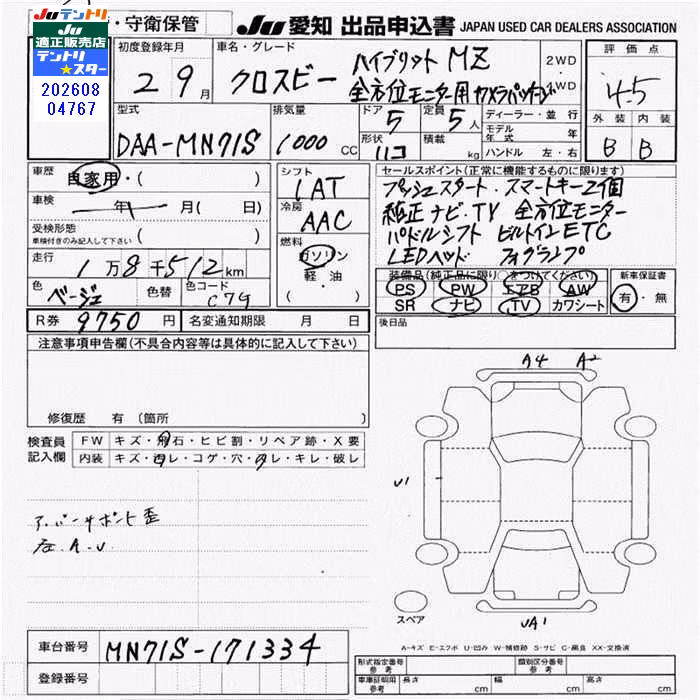 JUテントリ
適正販売店
テントリ
★スター
202608
04767
・守衛保管
JU 愛知 出品申込書 JAPAN USED CAR DEALERS ASSOCIATION
初度登録年月
2 9月
車名・グレード
クロスビー ハイブリット MZ
全方位モニター用カメラパッケージ
2WD
・
WD
評価点
4.5
外装 内装
B B
型式
DAA-MN71S
排気量
1000 CC
ドア
5
定員
5人
形状
ハコ
積載
kg
ディーラー・並行
モデル年式 年
ハンドル 左・右
車歴
自家用・( )
車検
年 月(日)
受検形態
車検付きのみ記入して下さい ( )
走行
1万8千512km
色
ベージュ
色替
色コード
C79
シフト
IAT
冷房
AAC
燃料
ガソリン
軽・油
・( )
セールスポイント(正常に機能するものに限ります)
プッシュスタート・スマートキー2個
純正ナビ・TV 全方位モニター
パドルシフト ビルトインETC
LEDヘッド フォグランプ
装備品(純正品に限り○をつけてください)
PS PW エアB AW
SR ナビ TV カワシート
新車保証書
有・無
R券 9750円
名変通知期限 月 日
後日品
注意事項申告欄(不具合内容等は具体的に記入して下さい)
修復歴 有 (箇所 )
検査員
記入欄
FW キズ・飛石・ヒビ割・リペア跡・X要
内装 キズ・汚レ・コゲ・穴・スレ・キレ・破レ
A4 A2
U1
UA1
ア.バーサポート歪
左.A.U
スペア
A-キズ E-エクボ U-凹み W-補修跡 S-サビ C-腐食 XX-交換済
車台番号 MN71S-171334
登録番号
形式指定番号
参考
類別区分番号
参考
車庫証明用
参考
長さ cm 幅 cm 高さ cm